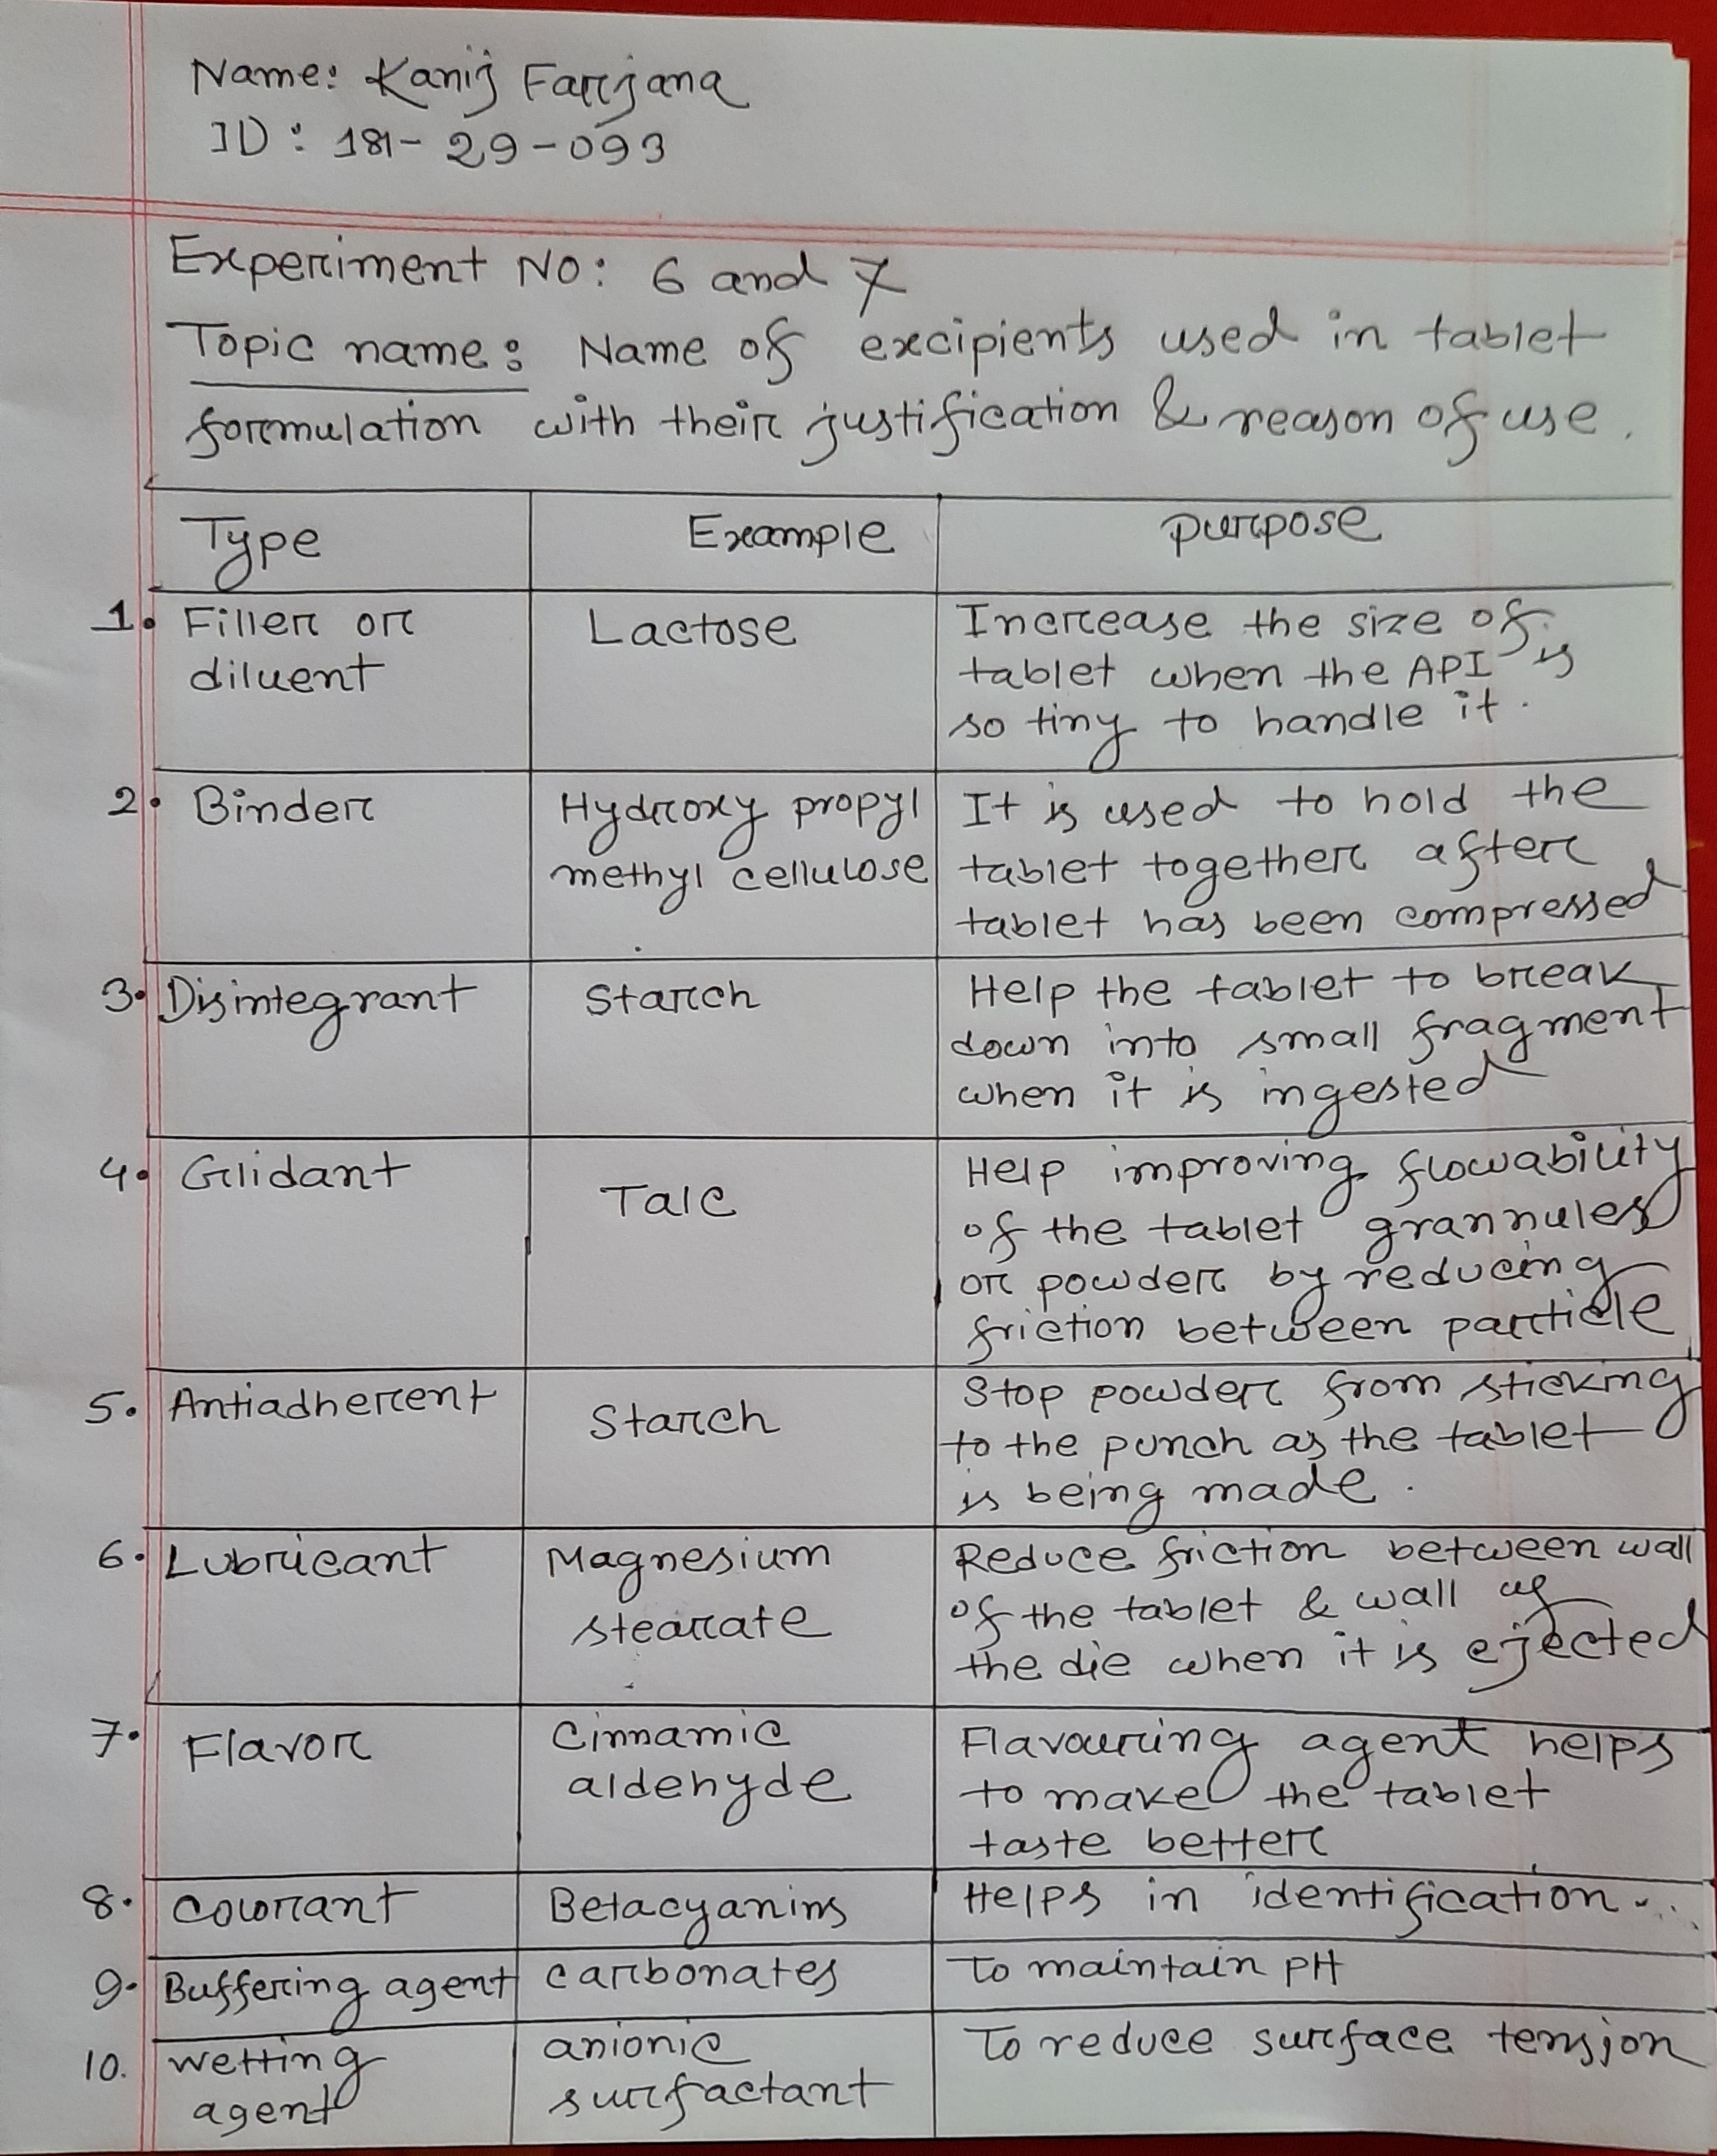 Name: Kanij Farjana
ID: 181-29-093
Experiment No: 6 and 7
Topic name: Name of excipients used in tablet
formulation with their justification & reason of use.
Type Example purpose
1. Filler or diluent
Lactose
Increase the size of
tablet when the API is
so tiny to handle it.
2. Binder
Hydroxy propyl
methyl cellulose
It is used to hold the
tablet together after
tablet has been compressed
3. Disintegrant
Starch
Help the tablet to break
down into small fragment
when it is ingested
4. Glidant
Talc
Help improving flowability
of the tablet grannules
or powder by reducing
friction between particle
5. Antiadherent
Starch
Stop powder from sticking
to the punch as the tablet
is being made.
6. Lubricant
Magnesium
stearate
Reduce friction between wall
of the tablet & wall of
the die when it is ejected
7. Flavor
Cinnamic
aldehyde
Flavouring agent helps
to make the tablet
taste better
8. Colorant
Betacyanins
Helps in identification...
9. Buffering agent
carbonates
To maintain pH
10. wetting
agent
anionic
surfactant
To reduce surface tension